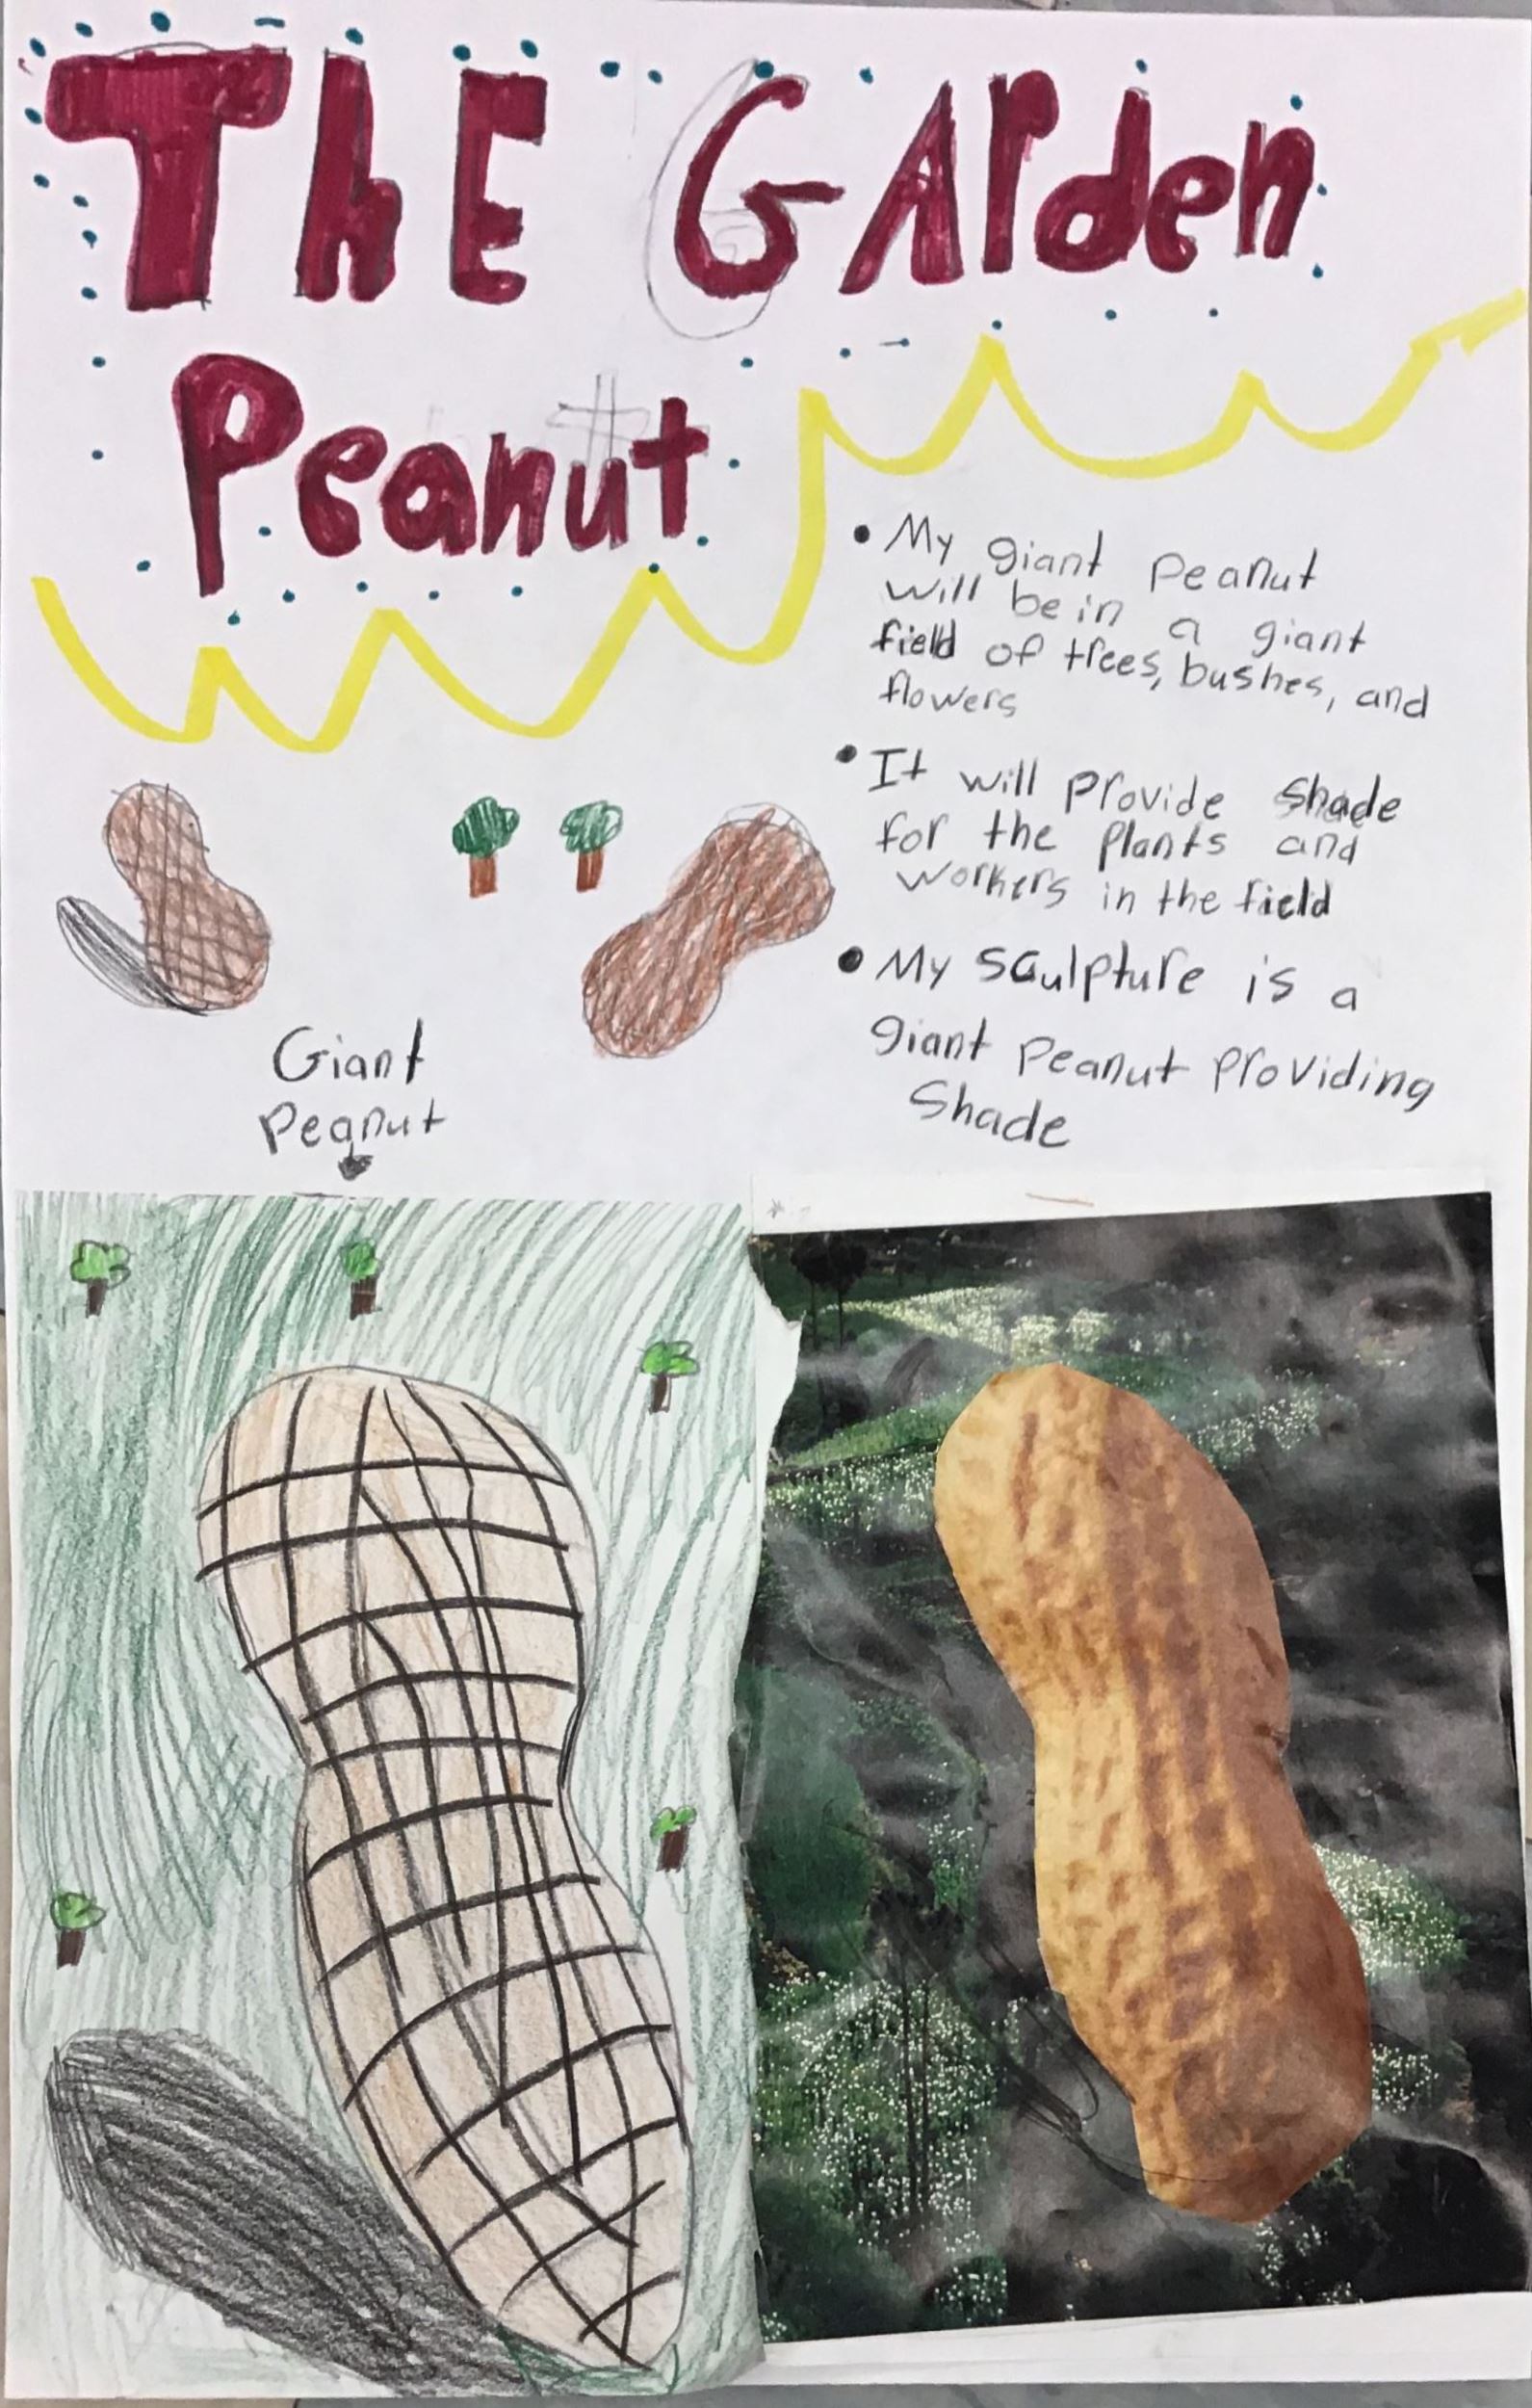 ThE GArden
Peanut
• My giant Peanut
will be in a giant
field of trees, bushes, and
flowers
• It will Provide Shade
for the Plants and
workers in the field
• My Sculpture is a
giant Peanut Providing
Shade
Giant
Peanut